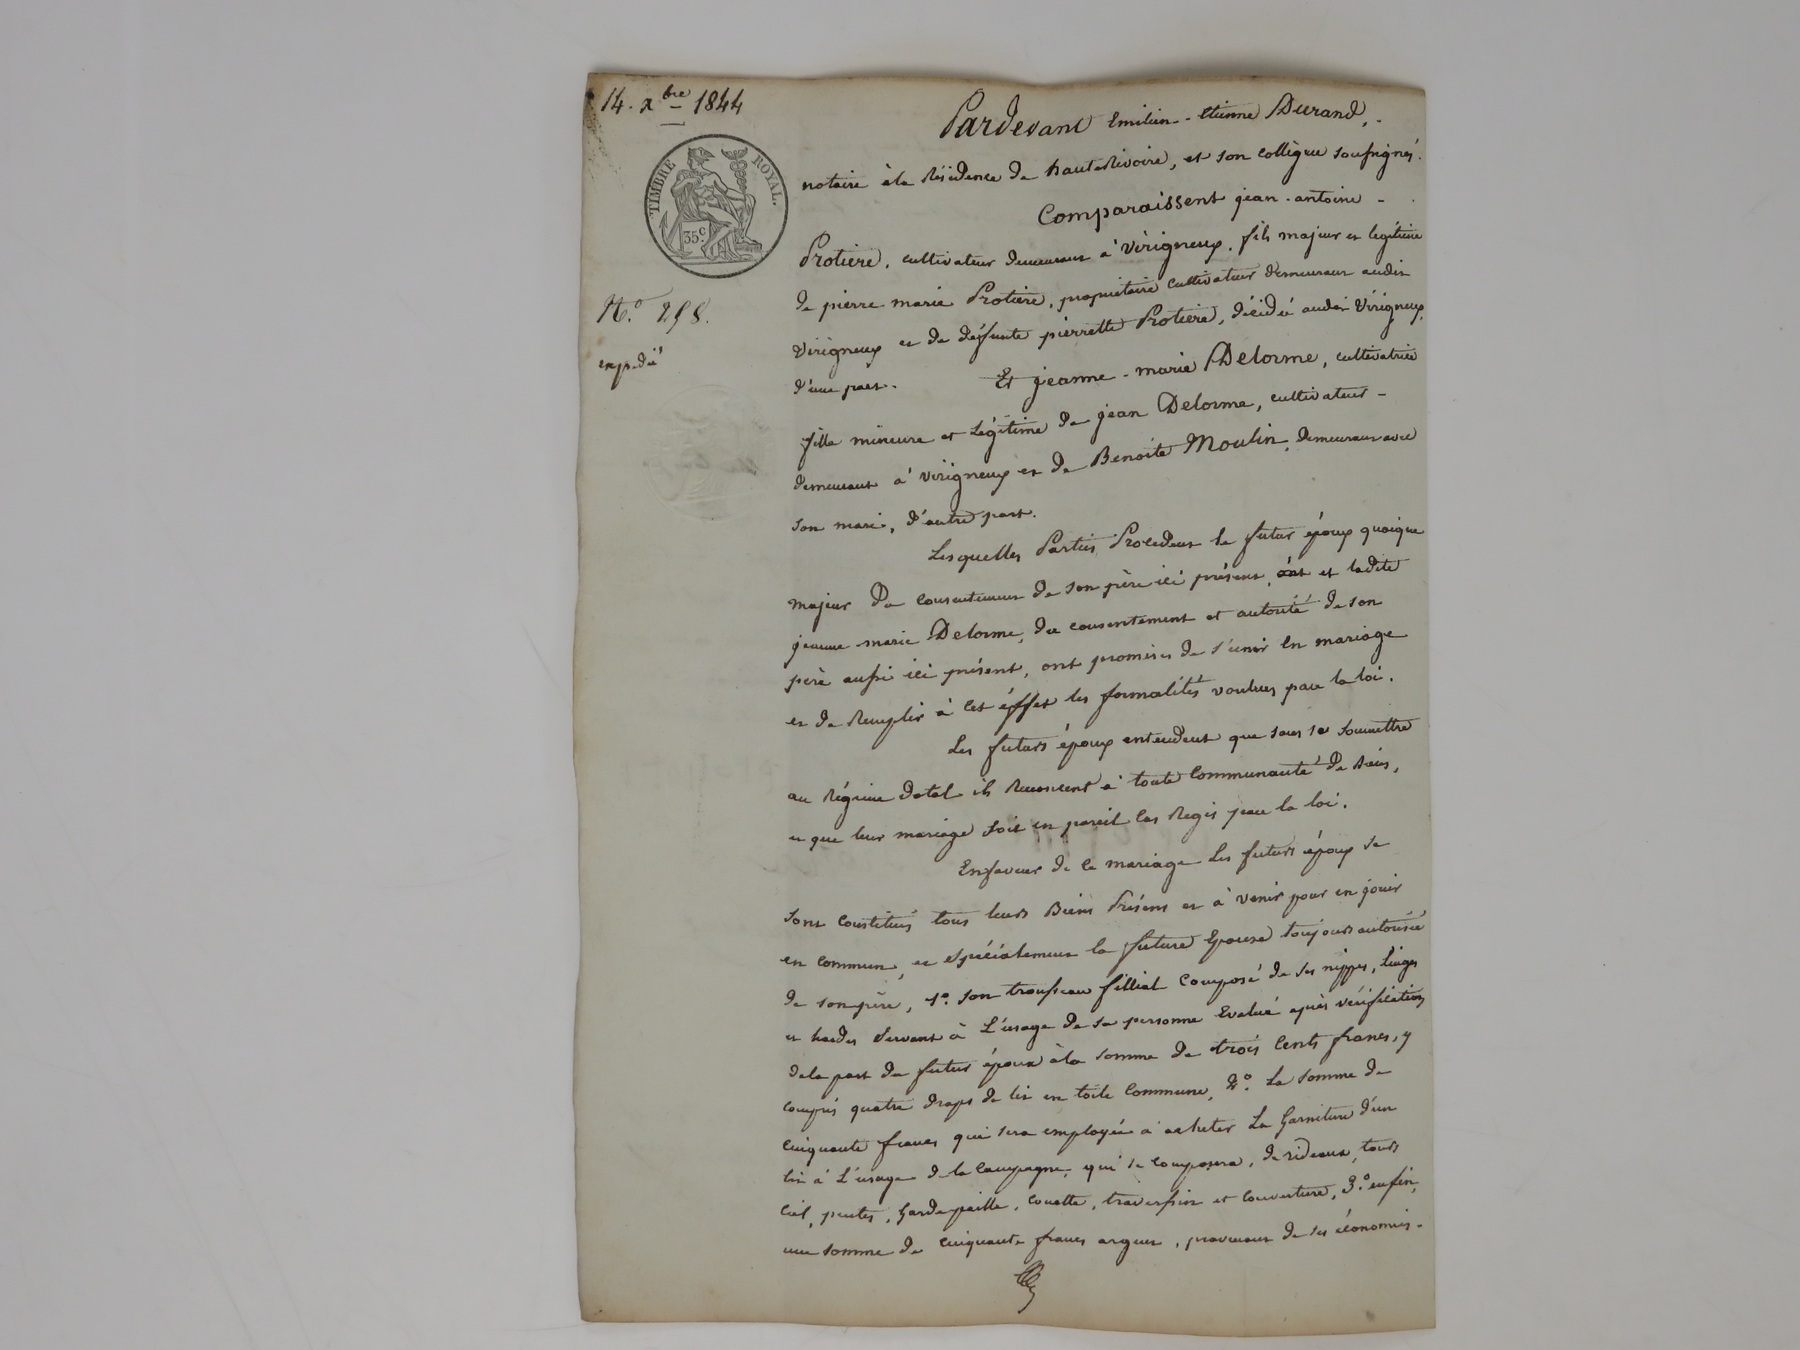 14. xbre 1844
TIMBRE ROYAL.
35 c.
No. 298.
expédié
Pardevant Emilien-Etienne Durand,
notaire à la Résidence de hauterivoire, et son collègue soussignés.
Comparaissent jean-antoine
Protière, cultivateur demeurant à Virigneux, fils majeur et légitime
de pierre marie Protière, propriétaire cultivateur demeurant audit
Virigneux et de défunte pierrette Protière, décédée audit Virigneux,
d'une part. Et jeanne-marie Delorme, cultivatrice
fille mineure et Légitime de jean Delorme, cultivateur
demeurant à Virigneux et de Benoite Moulin, demeurant avec
son mari, d'autre part.
Lesquelles Parties Procedent le futur époux quoique
majeur Du consentement de son père ici présent, et ladite
jeanne-marie Delorme, du consentement et autorité de son
père aussi ici présent, ont promis de s'unir en mariage
et de Remplir à cet éffet les formalités voulues par la loi.
Les futurs époux entendent que sans se soumettre
au Régime dotal ils Renoncent à toute Communauté De biens,
et que leur mariage soit en pareil cas Régis par la loi.
En faveur de ce mariage Les futurs époux se
sont Constitués tous leurs Biens Présens et à venir pour en jouir
en commun, et spécialement la future Epouse toujours autorisée
de son père, 1o. son trousseau fillial composé de ses nippes, linges
et hardes servant à L'usage de sa personne Evalué après vérification
de la part du futur époux à la somme de trois Cents francs, y
compris quatre draps de lit en toile Commune, 2o. La somme de
cinquante francs qui sera employée à acheter La Garniture d'un
lit à L'usage de la Campagne, qui se composera, de rideaux, tours
Ciel, pentes, Garde paille, Couette, traversin et Couverture, 3.o enfin,
une somme de cinquante francs argent, provenant de ses économies